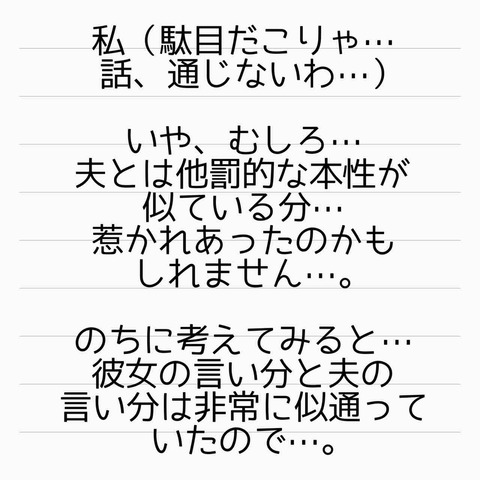 私（駄目だこりゃ…
話、通じないわ…）
いや、むしろ…
夫とは他罰的な本性が
似ている分…
惹かれあったのかも
しれません…。
のちに考えてみると…
彼女の言い分と夫の
言い分は非常に似通って
いたので…。